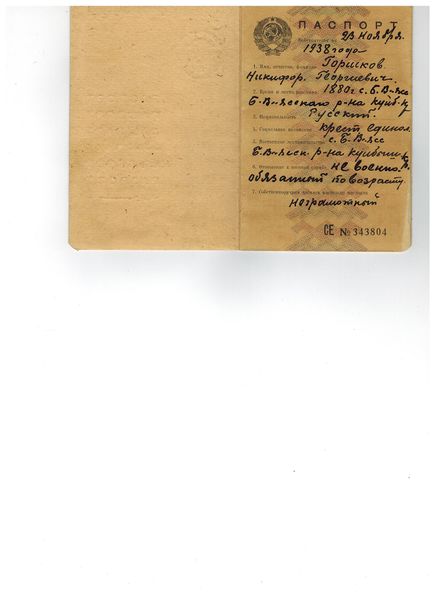 ПАСПОРТ
Действителен по 23 ноября.
1938 года
1. Имя, отчество, фамилия Горшков.
Никифор. Георгиевич.
2. Время и место рождения 1880 г. с. Б-В-ясс
Б. В-ясского р-на куйб-
3. Национальность Русский.
4. Социальное положение крест. единол.
5. Постоянное местожительство с. Б. В-ясс
Б. В-ясск. р-на куйбыш.
6. Отношение к военной службе не военно.
обязанный по возрасту.
7. Собственноручная подпись владельца паспорта
неграмотный
СЕ № 343804